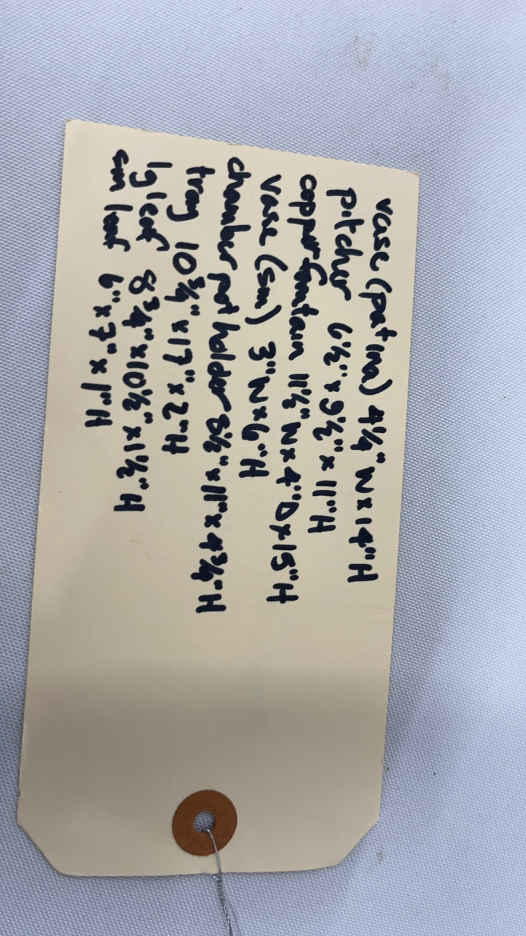 vase (patina) 4¼" W x 14" H
pitcher 6½" x 9½" x 11" H
copper fontain 11½" W x 4" D x 15" H
vase (sm) 3" W x 6" H
chamber pot holder 8½" x 11" x 4¾" H
tray 10¾" x 17" x 2" H
lg leaf 8¾" x 10½" x 1½" H
sm leaf 6" x 7" x 1" H